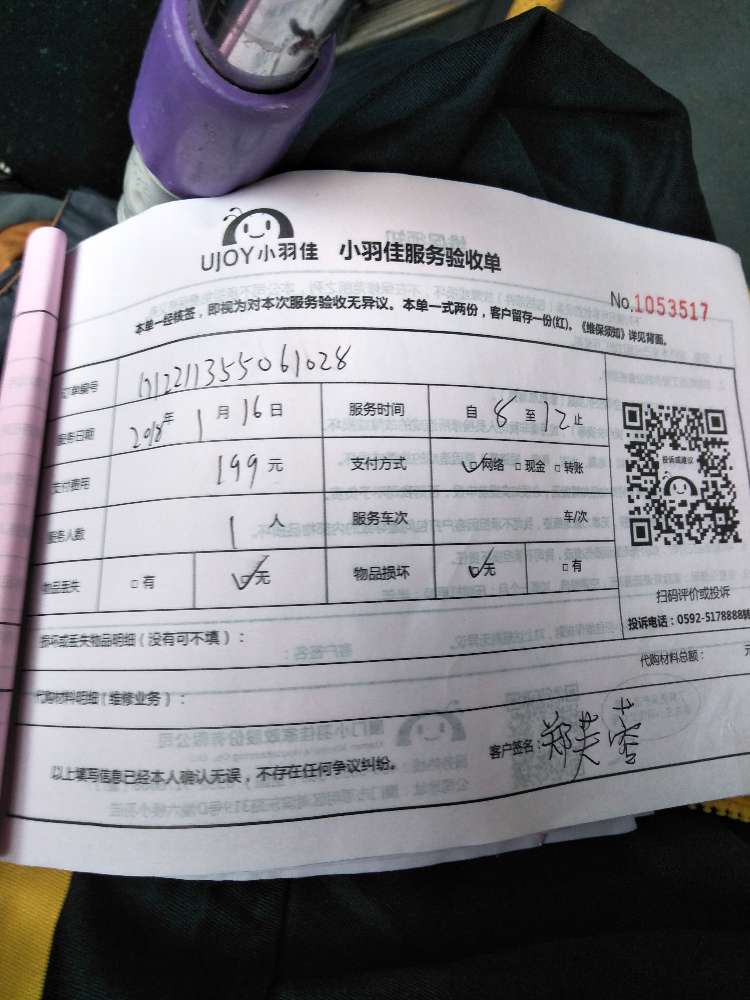 UJOY小羽佳 小羽佳服务验收单
No.1053517
本单一经核签，即视为对本次服务验收无异议。本单一式两份，客户留存一份(红)。《维保须知》详见背面。
订单编号 171221135506102 8
服务日期 2018年1月16日 服务时间 自8至12止
支付费用 199元 支付方式 ☑网络 □现金 □转账
服务人数 1人 服务车次 车/次
物品丢失 □有 ☑无 物品损坏 ☑无 □有
投诉或建议
扫码评价或投诉
投诉电话：0592-5178888转
损坏或丢失物品明细（没有可不填）：
代购材料明细（维修业务）： 代购材料总额： 元
以上填写信息已经本人确认无误，不存在任何争议纠纷。 客户签名：郑芙蓉